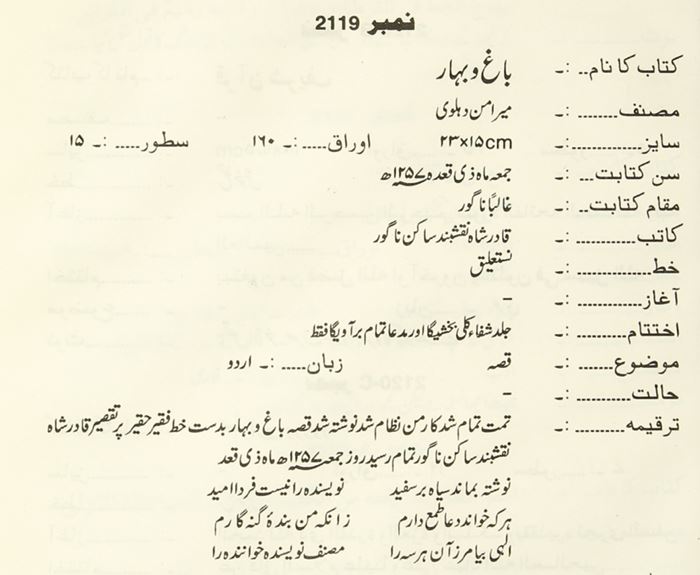 نمبر 2119
کتاب کا نام.. :۔ باغ و بہار
مصنف........ :۔ میر امن دہلوی
سایز............ :۔ ۲۳×۱۵cm اوراق..... :۔ ۱۶۰ سطور..... :۔ ۱۵
سن کتابت... :۔ جمعہ ماہ ذی قعدہ ۱۲۵۷ھ
مقام کتابت.. :۔ غالبًا ناگور
کاتب........... :۔ قادر شاہ نقشبند ساکن ناگور
خط............. :۔ نستعلیق
آغاز............ :۔ –
اختتام......... :۔ جلد شفاء کلی بخشیگا اور مدعا تمام برآویگا فقط
موضوع........ :۔ قصہ زبان..... :۔ اردو
حالت.......... :۔ –
ترقیمہ.......... :۔ تمت تمام شد کار من نظام شد نوشتہ شد قصہ باغ و بہار بدست خط فقیر حقیر پر تقصیر قادر شاہ
نقشبند ساکن ناگور تمام رسید روز جمعہ ۱۲۵۷ھ ماہ ذی قعد
نوشتہ بماند سیاہ بر سفید نویسندہ را نیست فردا امید
ہر کہ خواند دعا طمع دارم زانکہ من بندۂ گنہ گارم
الہی بیامرز آن ہر سہ را مصنف نویسندہ خوانندہ را